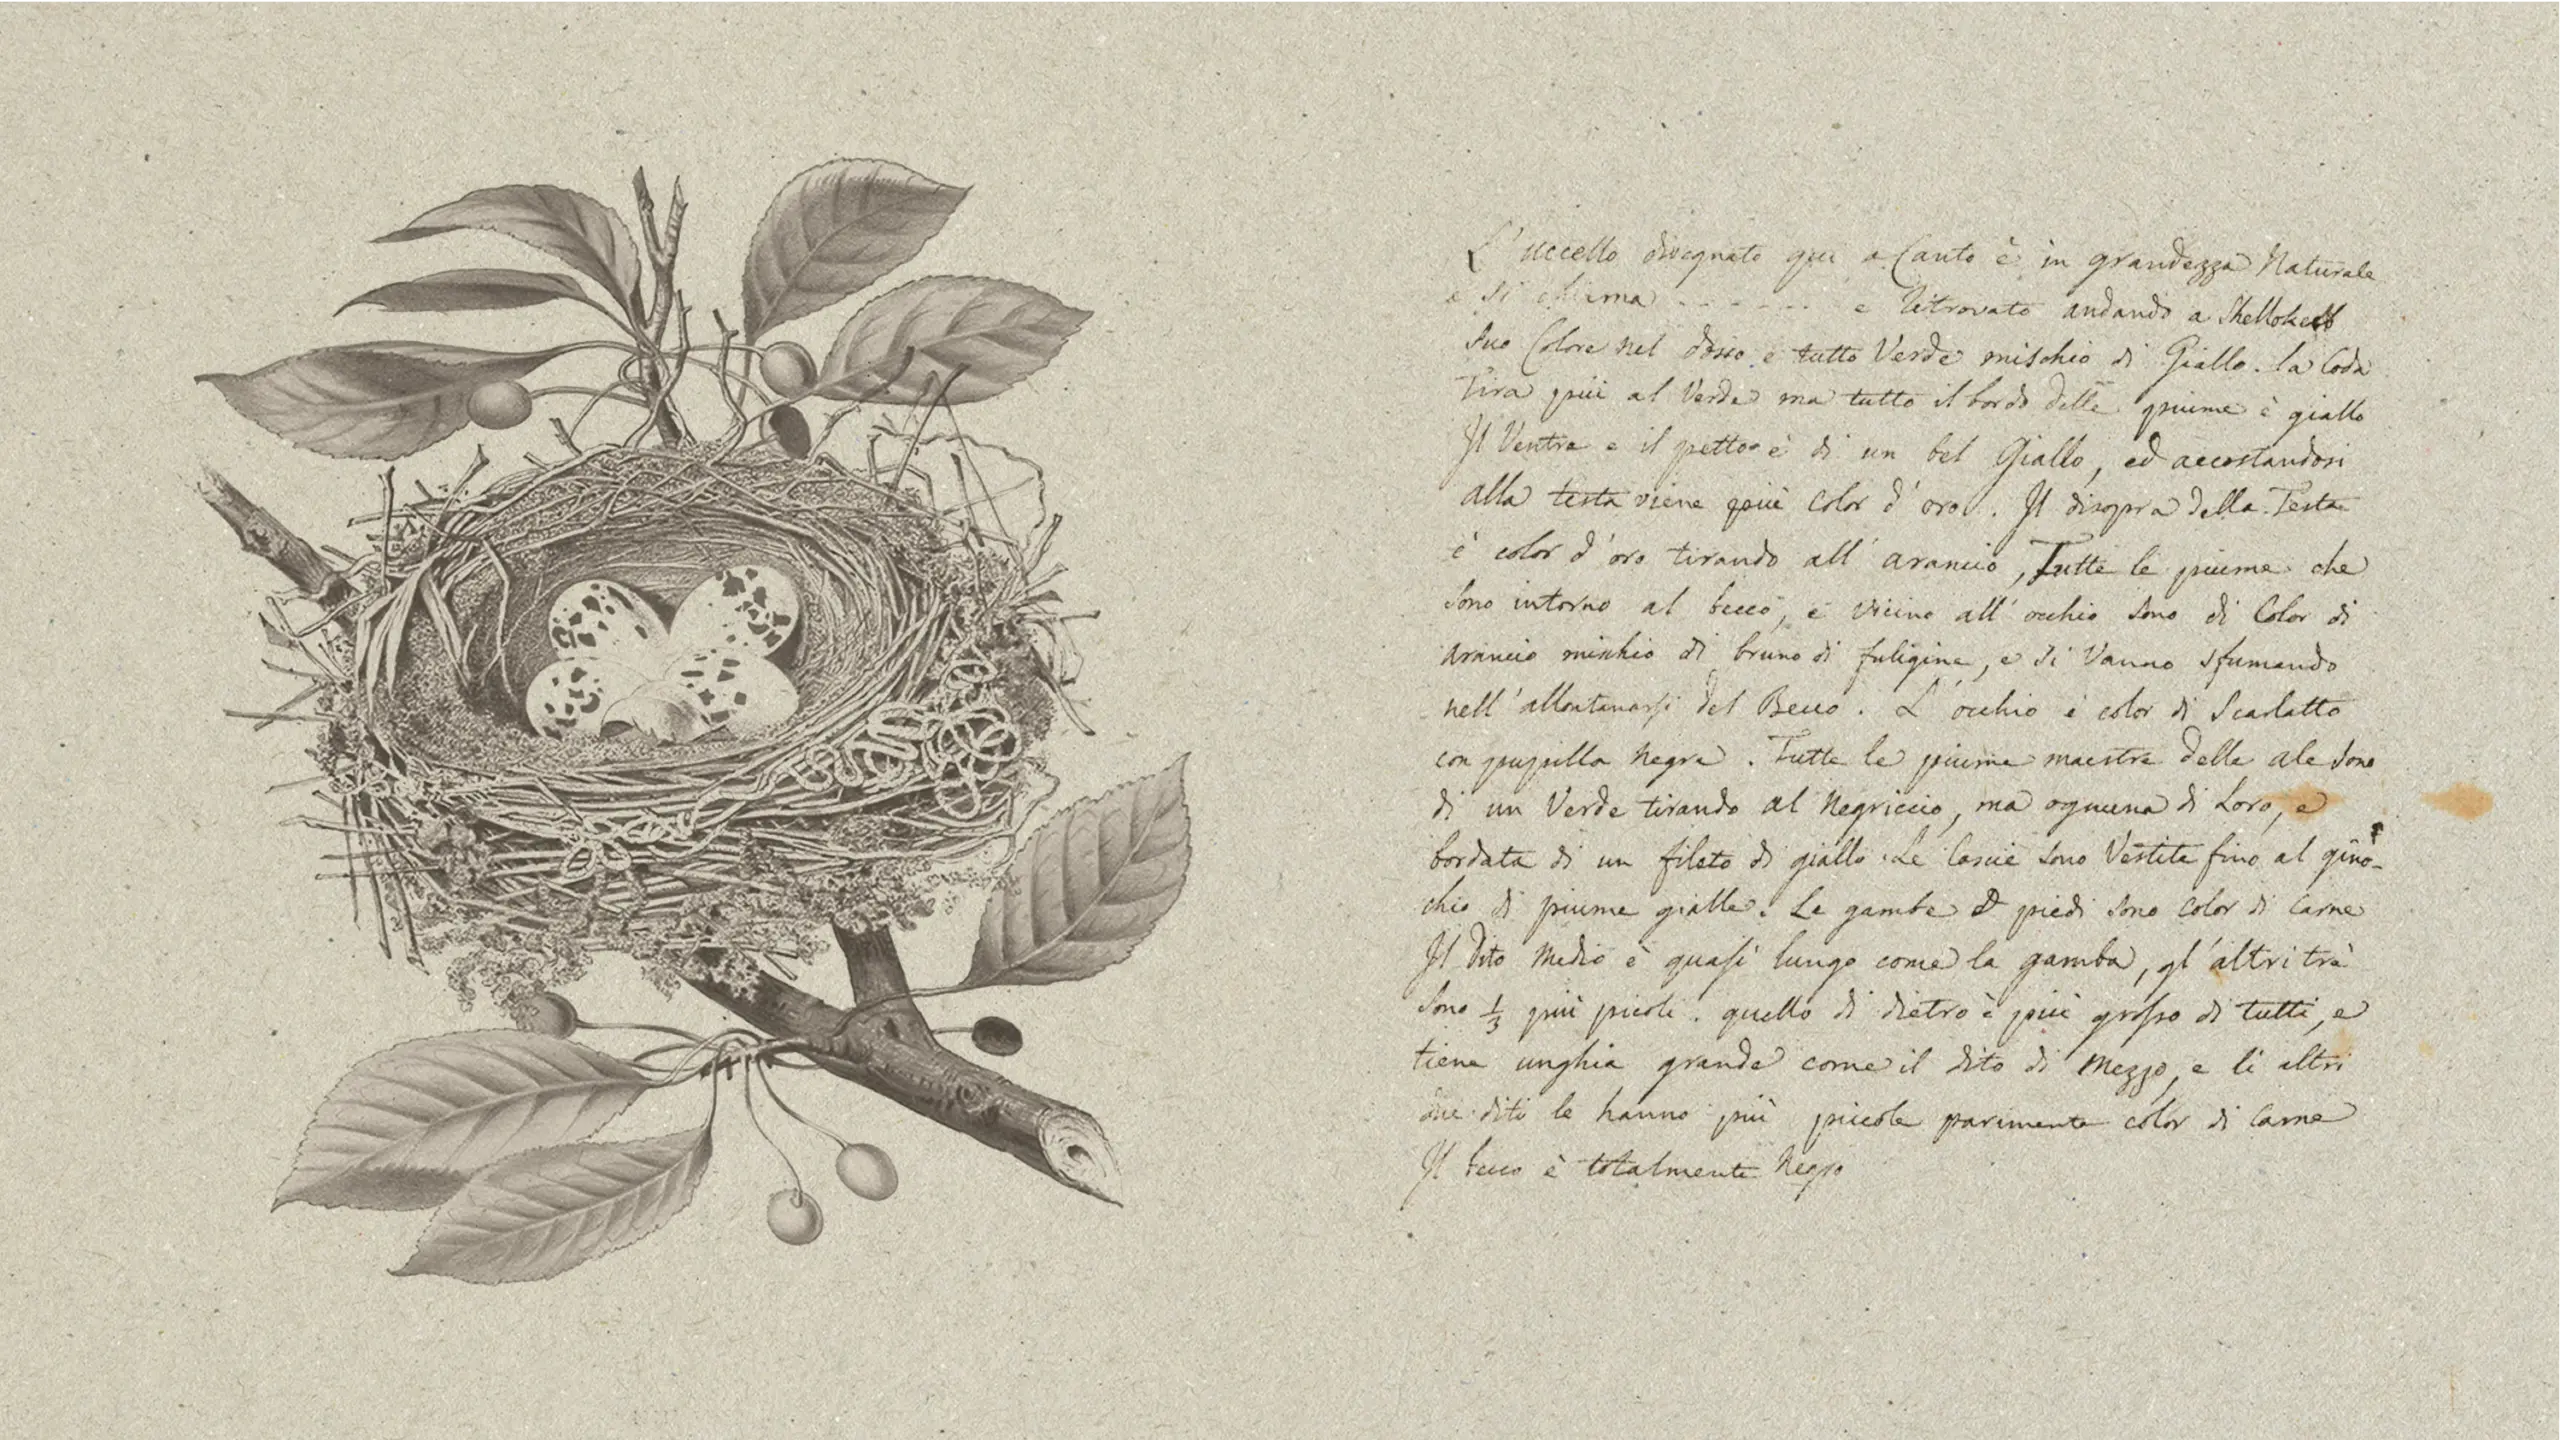 L'uccello disegnato qui a Canto è in grandezza Naturale
e si chiama - - - - - - - e Ritrovato andando a
Suo Colore nel dosso è tutto Verde mischio di Giallo. la Coda
Tira più al Verde ma tutto il bordo delle piume è giallo
Il Ventre e il petto è di un bel Giallo, ed accostandosi
alla testa viene più color d'oro. Il disopra della Testa
è color d'oro tirando all'arancio, Tutte le piume che
sono intorno al becco, e vicino all'occhio sono di Color di
arancio mischio di bruno di fuligine, e si vanno sfumando
nell'allontanarsi del Becco. L'occhio è color di Scarlatto
con pupilla negra. Tutte le piume maestre delle ale sono
di un Verde tirando al Negriccio, ma ognuna di Loro, e
bordata di un fileto di giallo. Le Coscie sono Vestite fino al gino-
chio di piume gialle. Le gambe e piedi sono color di carne
Il Dito Medio è quasi lungo come la gamba, gl'altri trè
sono 1/3 più picoli. quello di dietro è più grosso di tutti, e
tiene unghia grande come il dito di Mezzo, e li altri
due diti le hanno più picole parimente color di Carne
Il becco è totalmente Negro